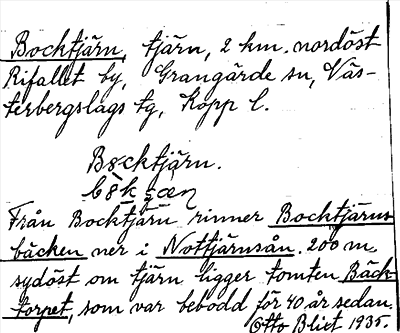 Bocktjärn, tjärn, 2 km. nordöst
Rifallet by, Grangärde sn, Väs-
terbergslags tg, Kopp l.
Bocktjärn.
Från Bocktjärn rinner Bocktjärns-
bäcken ner i Nottjärnsån. 200 m.
sydöst om tjärn ligger tomten Bäck-
torpet, som var bebodd för 40 år sedan.
Otto Blixt 1935.